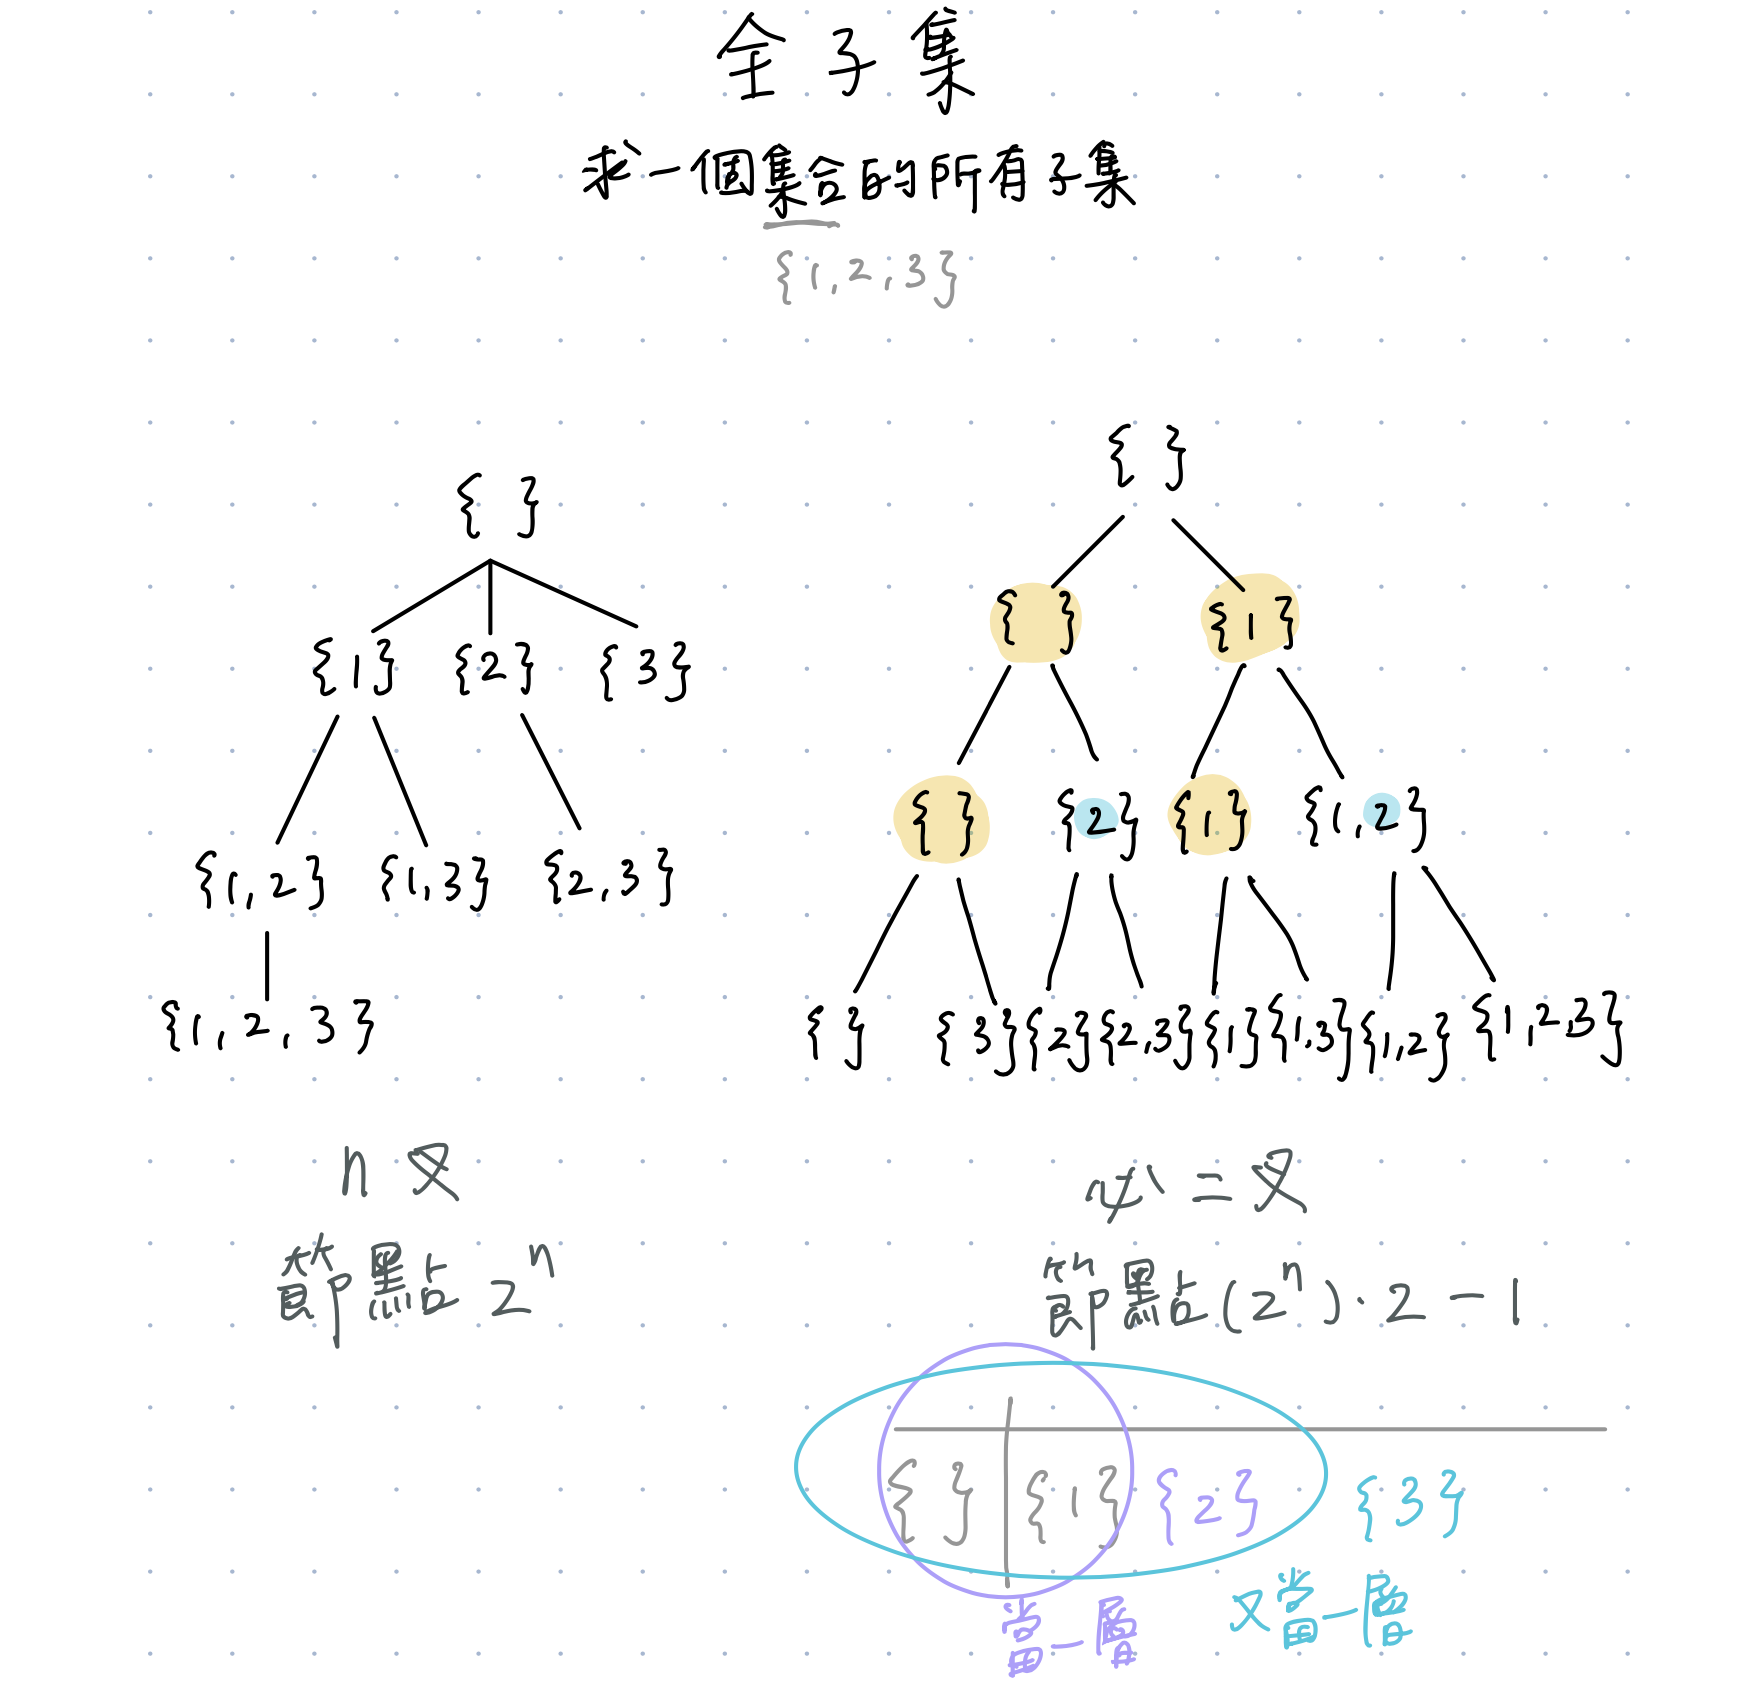 全子集
求一個集合的所有子集
{1,2,3}
{ }
{1} {2} {3}
{1,2} {1,3} {2,3}
{1,2,3}
n 叉
節點 2^n
{ }
{ } {1}
{ } {2} {1} {1,2}
{ } {3} {2} {2,3} {1} {1,3} {1,2} {1,2,3}
必二叉
節點(2^n)·2-1
{ } {1} {2} {3}
當一層
又當一層